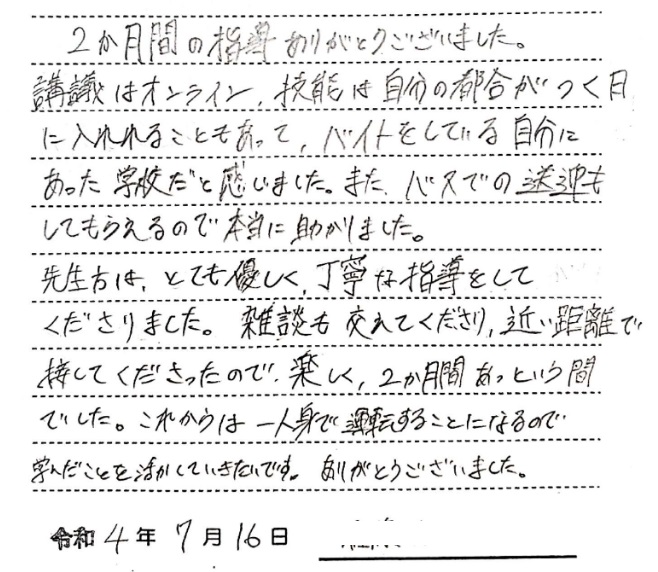 2か月間の指導ありがとうございました。
講議はオンライン、技能は自分の都合がつく日
に入れれることもあって、バイトをしている自分に
あった学校だと感じました。また、バスでの送迎も
してもらえるので本当に助かりました。
先生方は、とても優しく、丁寧な指導をして
くださりました。雑談も交えてくださり、近い距離で
接してくださったので、楽しく、2か月間あっという間
でした。これからは一人身で運転することになるので
学んだことを活かしていきたいです。ありがとうございました。
令和4年7月16日